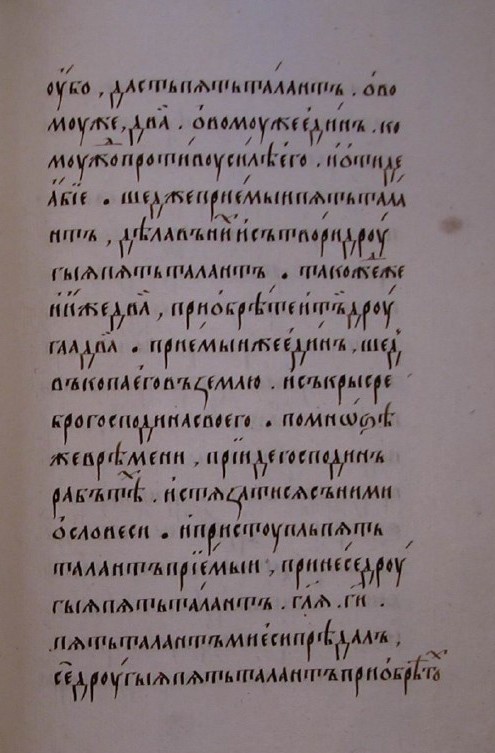 оу҆́бо , дастьпѧтьтала́нтъ . о҆́во
моуже , два̀ . о҆́вомоужеє҆ди́нъ . ко
моуждо проти́воуси́лѣє҆го̀ . и҆ѿиде
а҆́бїе . шеджеприе́мыипѧтьтала
нтъ , дѣлавъни́хи҆сътвори́дроу
гыѧпѧтьталантъ . такожеже
и҆и҆жедва̀ , приѡ҆брѣтеи҆тъ́дроу
гаадва̀ . прие́мыижеє҆ди́нъ , шед
въкопає҆говъземлю . и҆съкрысре
брогосподинасвоего . помноѕѣ
жевре́мени , прїи́дегосподи́нъ
рабътѣ́х . и҆стѧзатисѧсъними
о҆словеси . и҆пристоупльпѧть
талантъпрїе́мыи , принесе́дроу
гыѧпѧтьталантъ . гл҃ѧ . гн҃и .
пѧтьталантъмиє҆сипрѣдалъ ,
седроугы́ѧпѧтьталантъприо҆брѣто́х